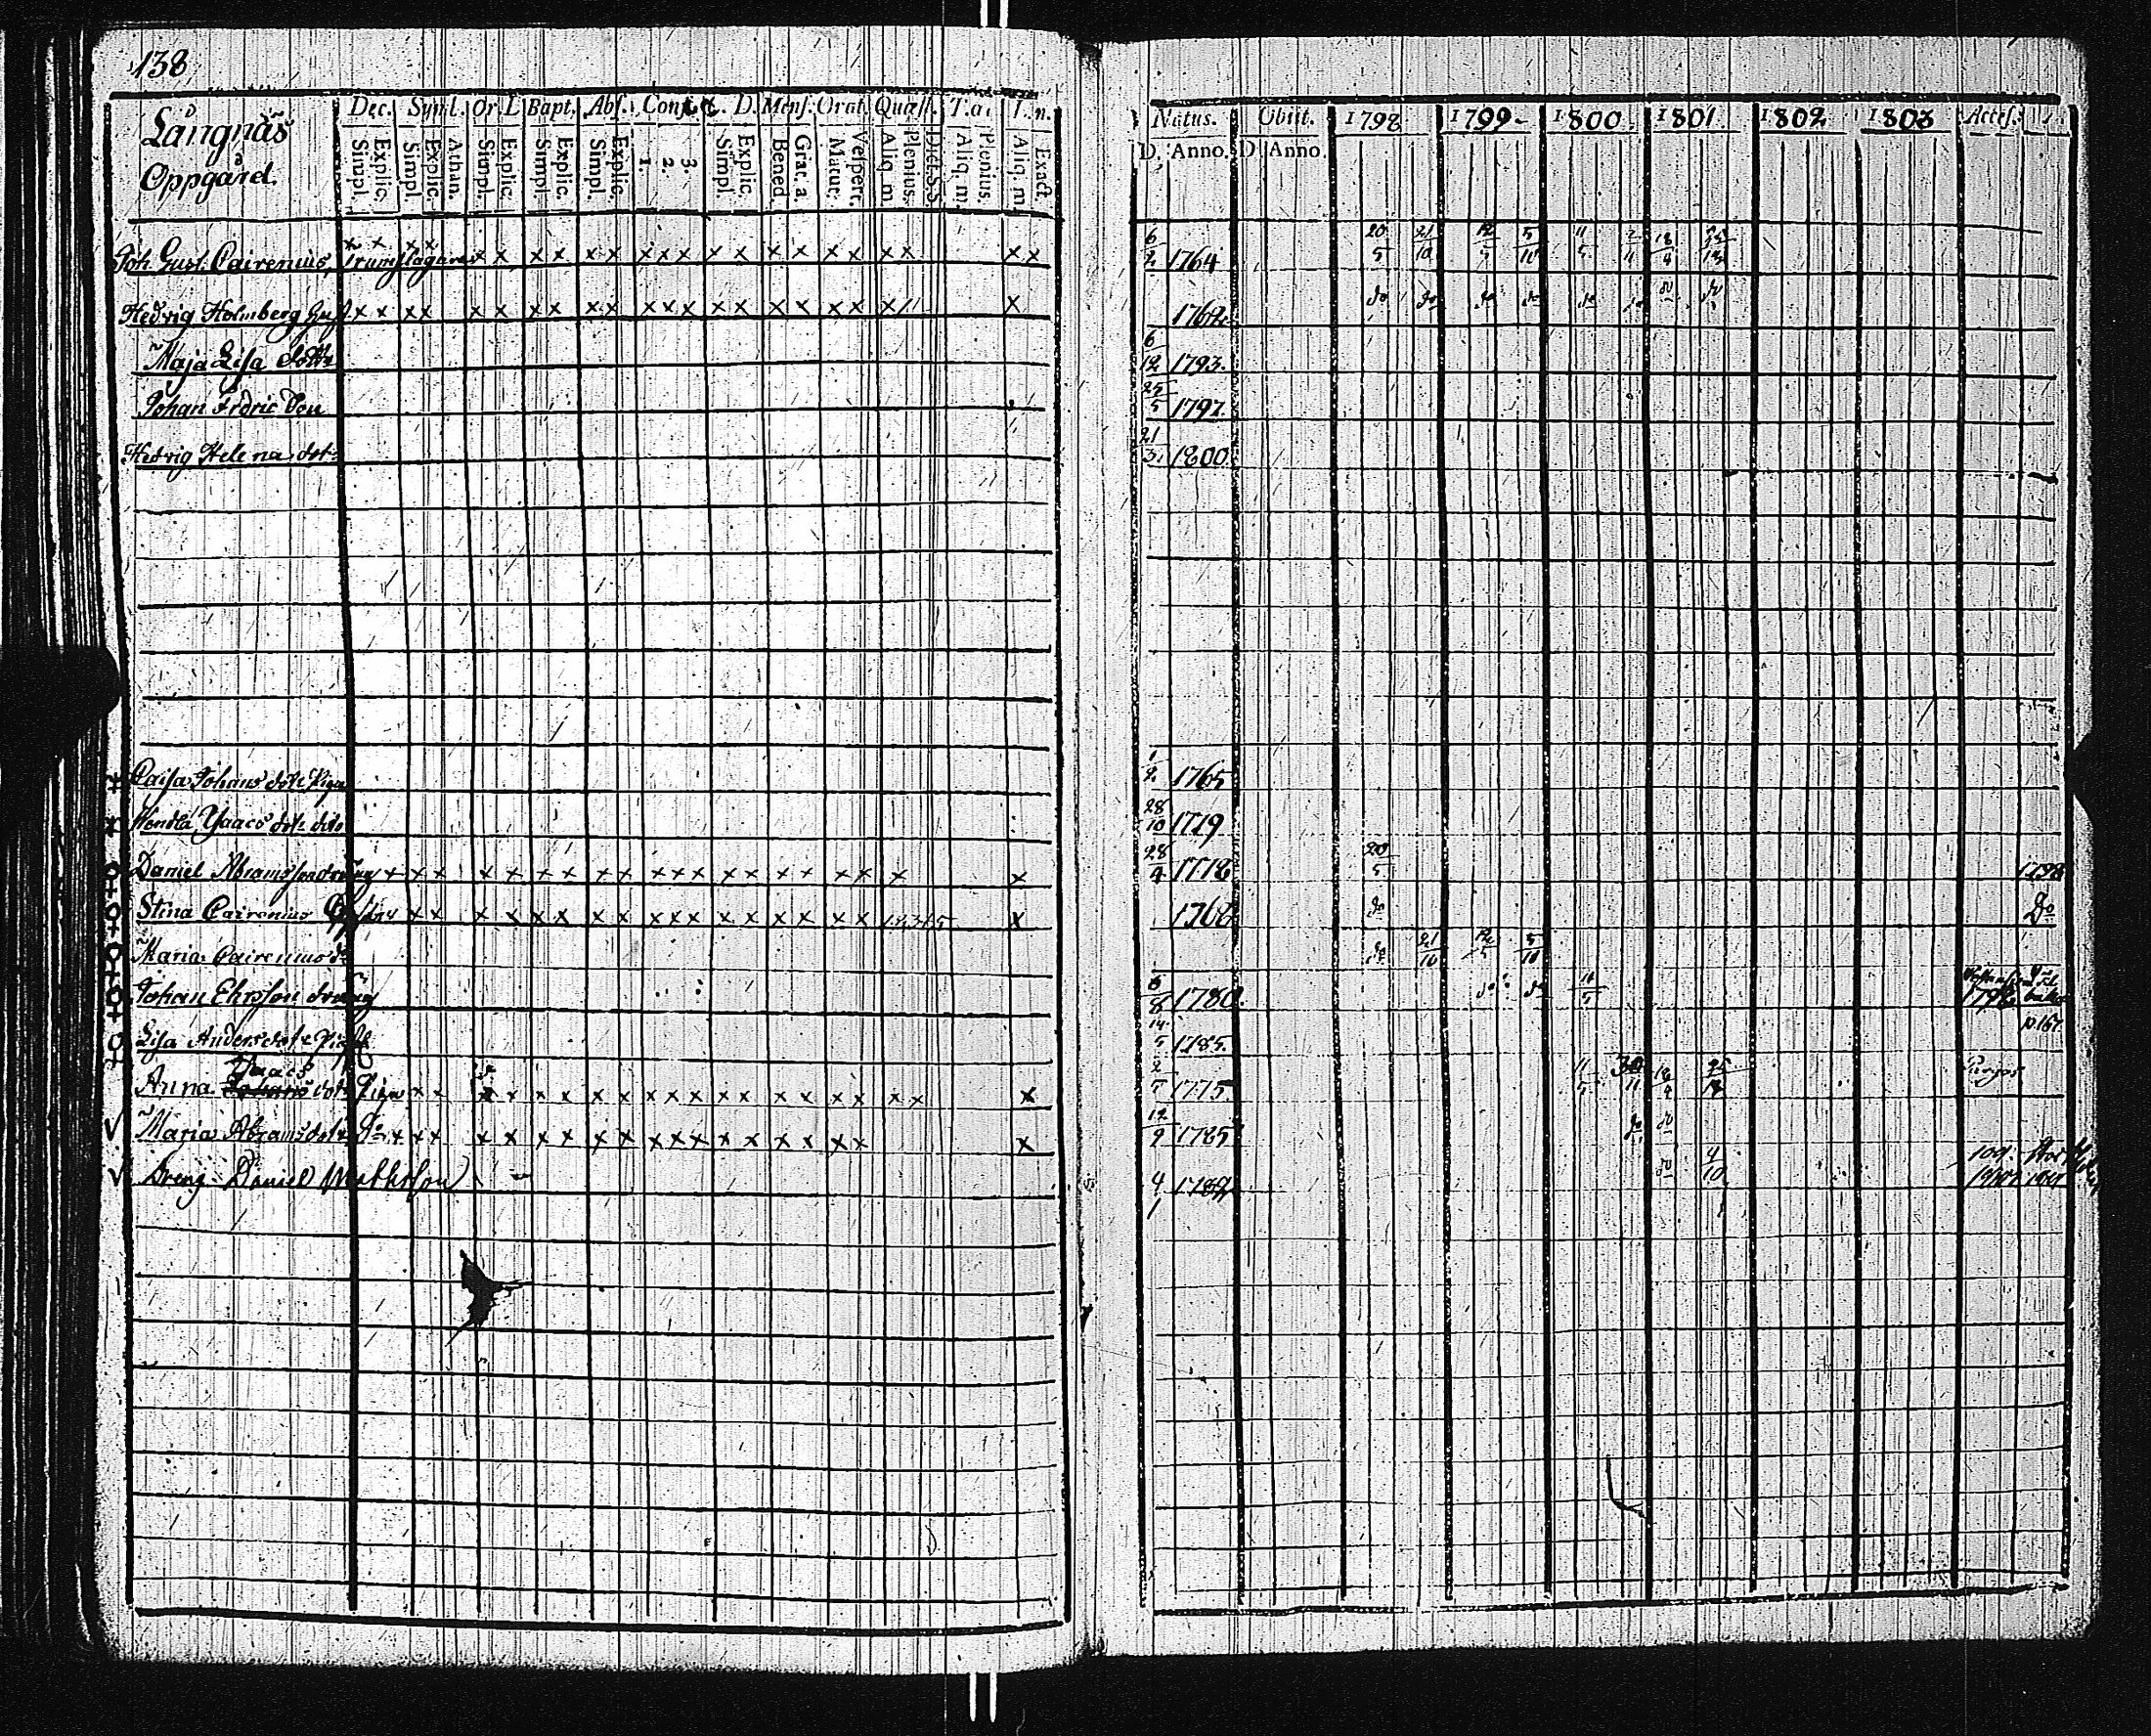 138
Långnäs
Oppgård.
Dec. Symb. Or. D. Bapt. Abs. Conf. C. D. Mens. Orat. Quæst. T. æ.
Simpl. Explic. Simpl. Explic. Athan. Simpl. Explic. Simpl. Explic. Simpl. Explic. 1. 2. 3. Simpl. Explic. Bened. Grat. a. Matut. Vespert. Aliq. m. Plenius. Dict. S.S. Aliq. m. Plenius. Aliq. m. Exact.
Natus. Obiit. 1798 1799 1800 1801 1802 1803 Access.
D. Anno. D. Anno.
Joh. Gust. Cairenius, Trumslagare x x x x x x x x x x x x x x x x x x x x x x x 6/2 1764 20/5 21/10 12/5 5/10 11/5 18/4
Hedvig Holmberg Hust x x x x x x x x x x x x x x x x x x x x x 1762 do do do do do do do do
Maja Lisa dotter 6/12 1793.
Johan Fredric Son 25/5 1797
Hedvig Helena dotr 21/3 1800
Caisa Johans dotr Piga 1/2 1765
Hendla Jaacs dotr dito 28/10 1779
Daniel Abramsson dräng x x x x x x x x x x x x x x x x x x x x 28/4 1778 20/5 1798
Stina Cairenius x x x x x x x x x x x x x x x x x x 1.2.3.4.5 x 1768 do Do
Maria Cairenius do do 21/10 12/5 5/10
Johan Ehrsson dräng 5/8 1780 do do 11/5 179 p. 167
Lisa Anders dotr Piga 14/5 1785.
Anna Jaacs Johans dotr Piga x x x x x x x x x x x x x x x x x x x 2/7 1775 11/5 30/11 18/4 25/12
Maria Abrams dotr Do x x x x x x x x x x x x x x x x x x x 12/9 1785 do do
Dreng Daniel Mathsson 4/1 1784 do 4/10 1801